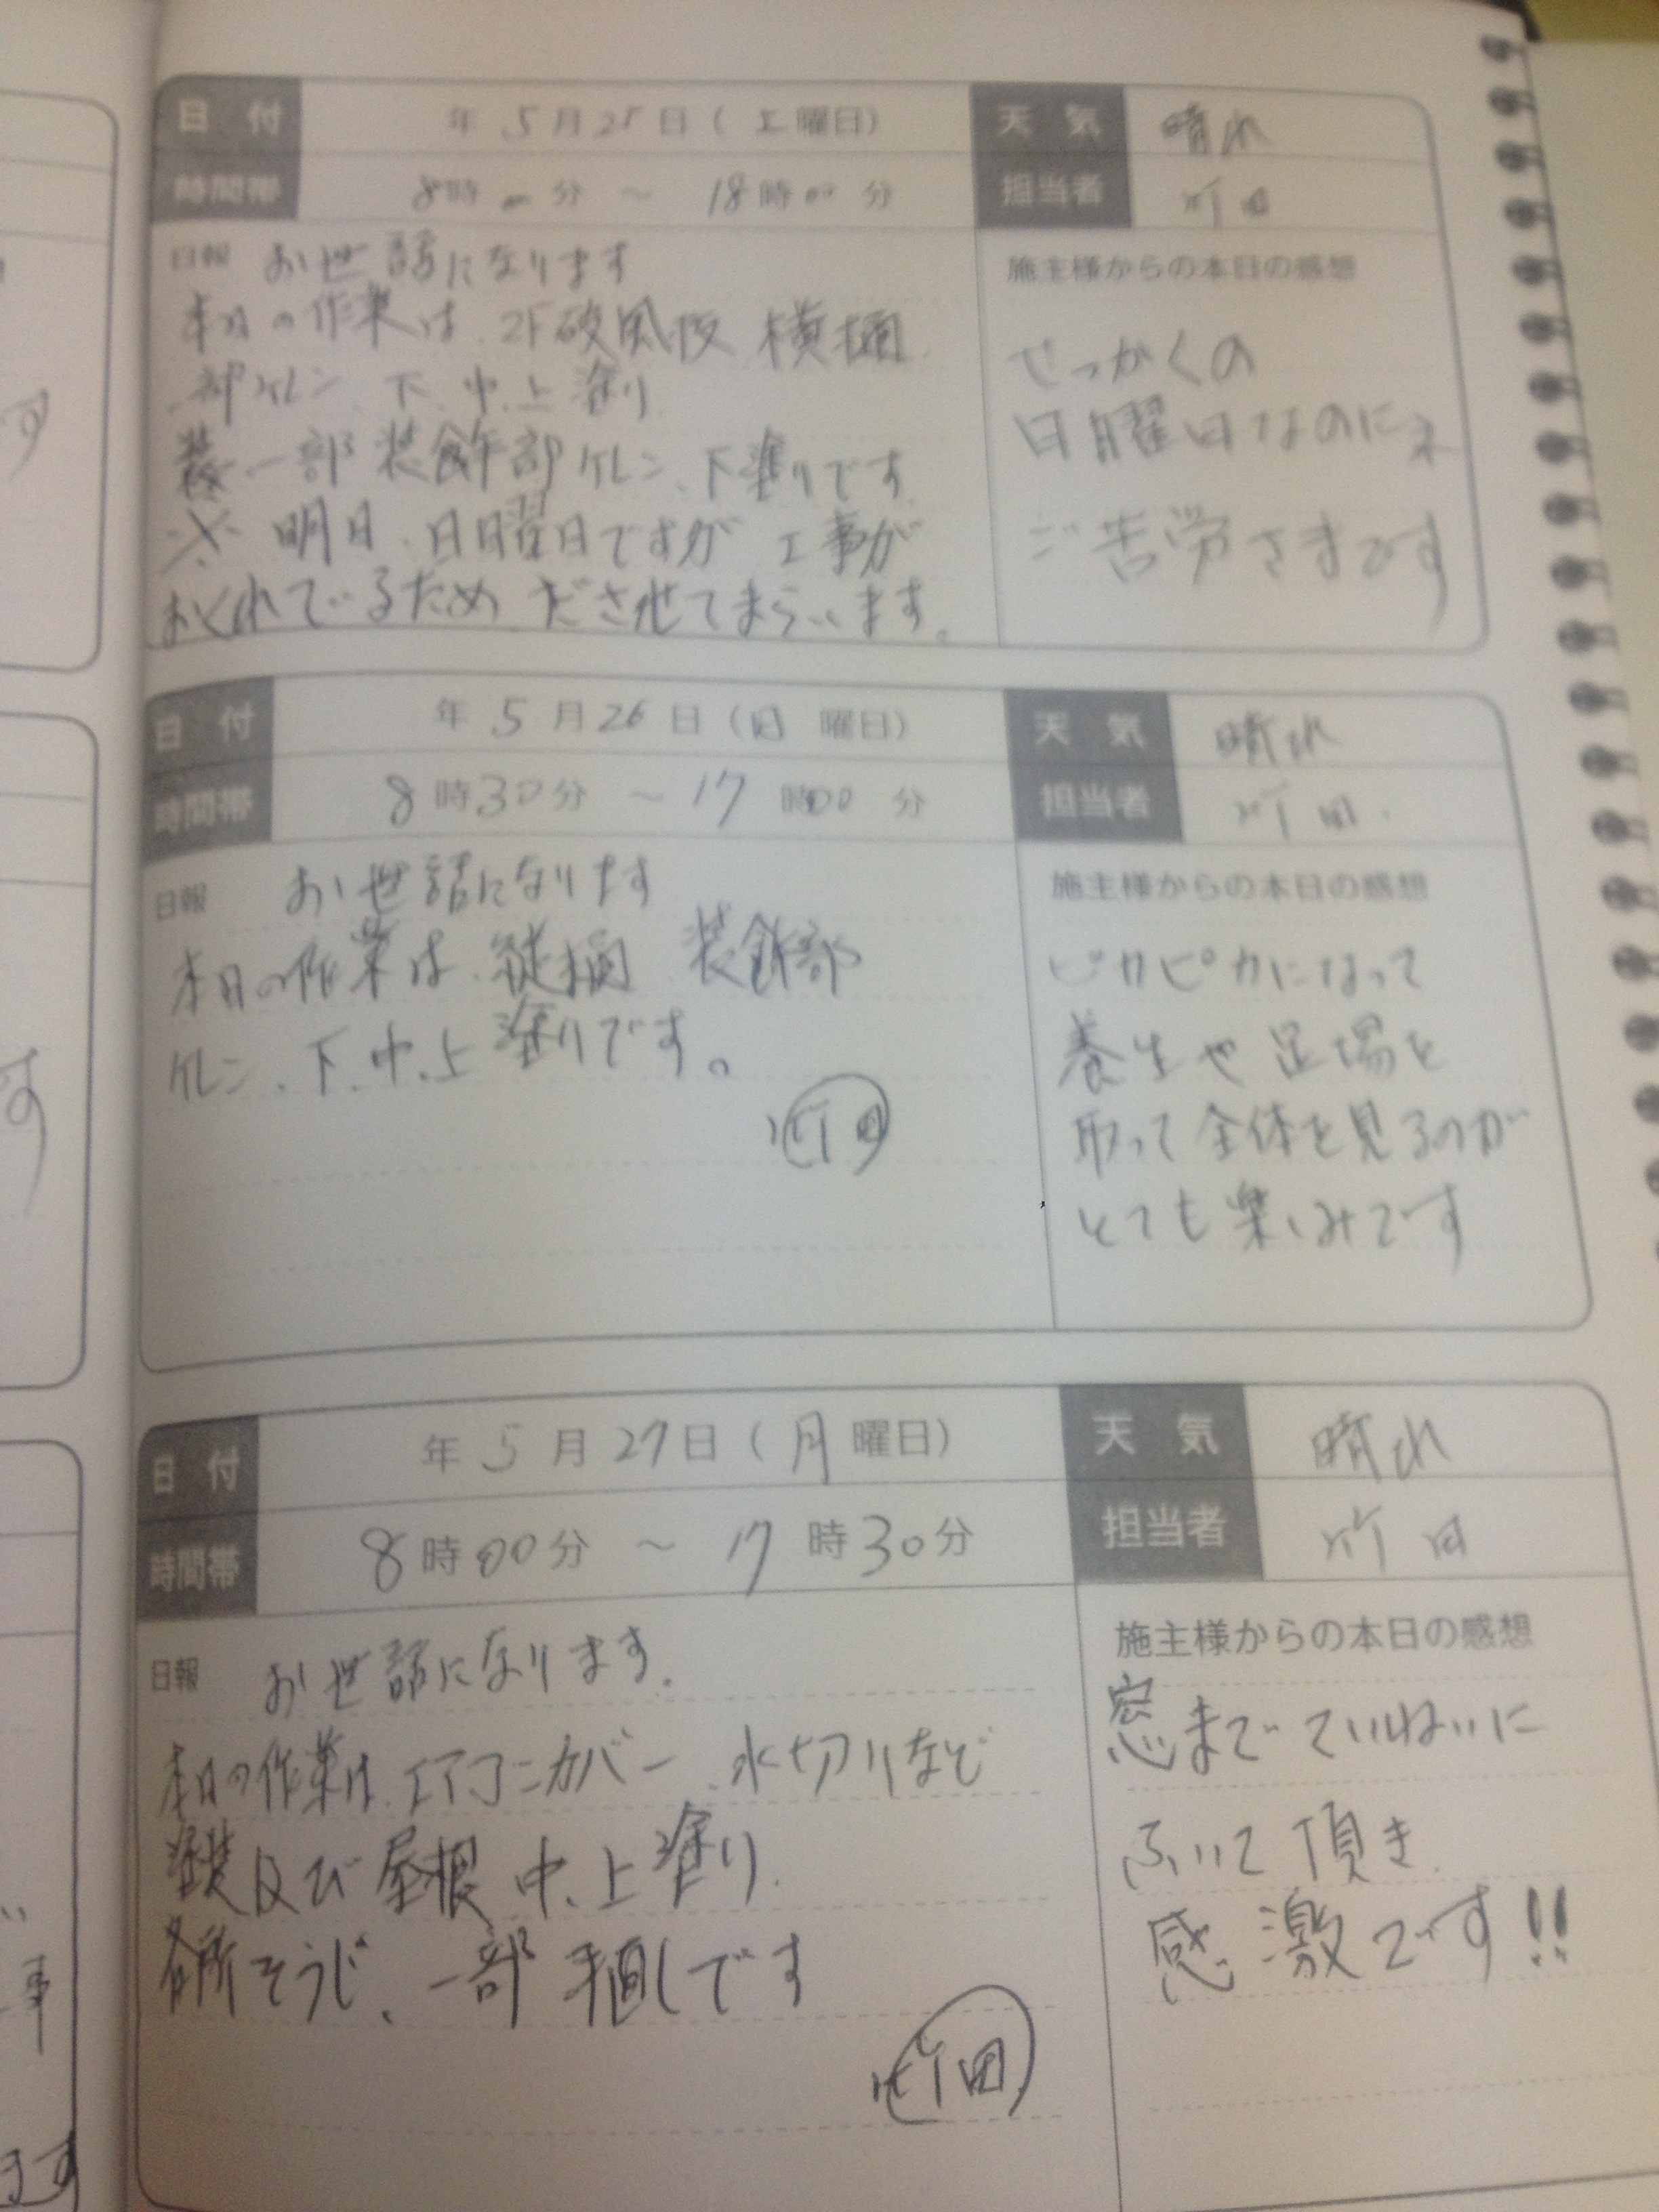 日付 年 5月25日(土曜日) 天気 晴れ
時間帯 8時00分 ~ 18時00分 担当者 竹田
日報 お世話になります
本日の作業は、2F破風板 横樋
部ケレン、下、中、上塗り
一部装飾部ケレン、下塗りです
※ 明日、日曜日ですが 工事が
おくれているため ださせてもらいます。
施主様からの本日の感想
せっかくの
日曜日なのにネ
ご苦労さまです
日付 年 5月26日(日曜日) 天気 晴れ
時間帯 8時30分 ~ 17時00分 担当者 竹田
日報 お世話になります
本日の作業は、縦樋 装飾部
ケレン、下、中、上塗りです。
竹田
施主様からの本日の感想
ピカピカになって
養生や足場を
取って全体を見るのが
とても楽しみです
日付 年 5月27日(月曜日) 天気 晴れ
時間帯 8時00分 ~ 17時30分 担当者 竹田
日報 お世話になります。
本日の作業は、エアコンカバー、水切りなど
塗装及び屋根 中、上塗り
各所そうじ、一部手直しです
竹田
施主様からの本日の感想
窓までていねいに
ふいて頂き
感激です!!
す
す
事
ます